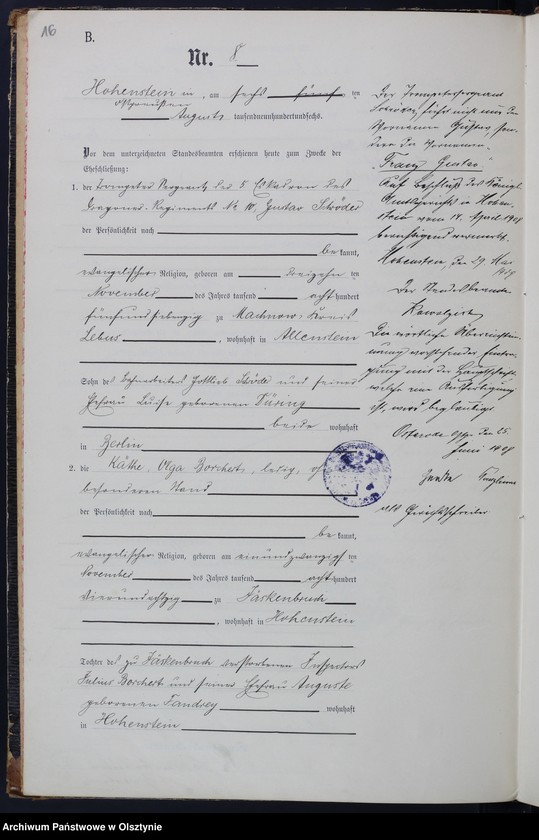 16
B.
Nr. 8
Hohenstein in, am sechs fünf ten
Ostpreußen
Augusts tausendneunhundertundsechs.
Vor dem unterzeichneten Standesbeamten erschienen heute zum Zwecke der
Eheschließung:
1. der Trompeter Sergeant der 5 Eskadron des
Dragoner-Regiments Nr 10, Gustav Schröder
der Persönlichkeit nach
bekannt,
evangelischer Religion, geboren am dreizehn ten
November des Jahres tausend achthundert
fünfundsiebenzig zu Machnow, Kreis
Lebus, wohnhaft in Allenstein
Sohn des Gottlieb Schröder und seiner
Ehefrau Luise geborenen Düring
beide wohnhaft
in Berlin
2. die Käthe Olga Borchert, ledig, ohne
besonderen Stand
der Persönlichkeit nach
bekannt,
evangelischer Religion, geboren am einundzwanzigsten
November des Jahres tausend achthundert
vierundachtzig zu Jäskenbruch
, wohnhaft in Hohenstein
Tochter des zu Jäskenbruch verstorbenen Inspectors
Julius Borchert und seiner Ehefrau Auguste
geborenen Tandrey wohnhaft
in Hohenstein
Der Trompetersergeant
Schröder führt nicht nur den
Vornamen Gustav, sondern
die Vornamen
"Franz Gustav"
Auf Beschluß des Königl.
Amtsgerichts in Hohenstein
vom 14. April
berichtigend vermerkt.
Hohenstein, den 29. Mai
Der Standesbeamte
Die wörtliche Übereinstimmung
vorstehender Eintragung
mit dem Hauptregister
wird beglaubigt.
Osterode Opr. den 25.
Juni
als Gerichtsschreiber
Archiwum Państwowe w Olsztynie